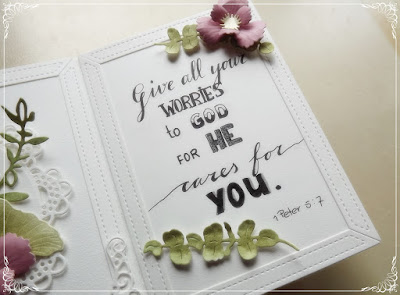 Give all your
WORRIES
to GOD
FOR HE
cares for
YOU.
1 Peter 5:7